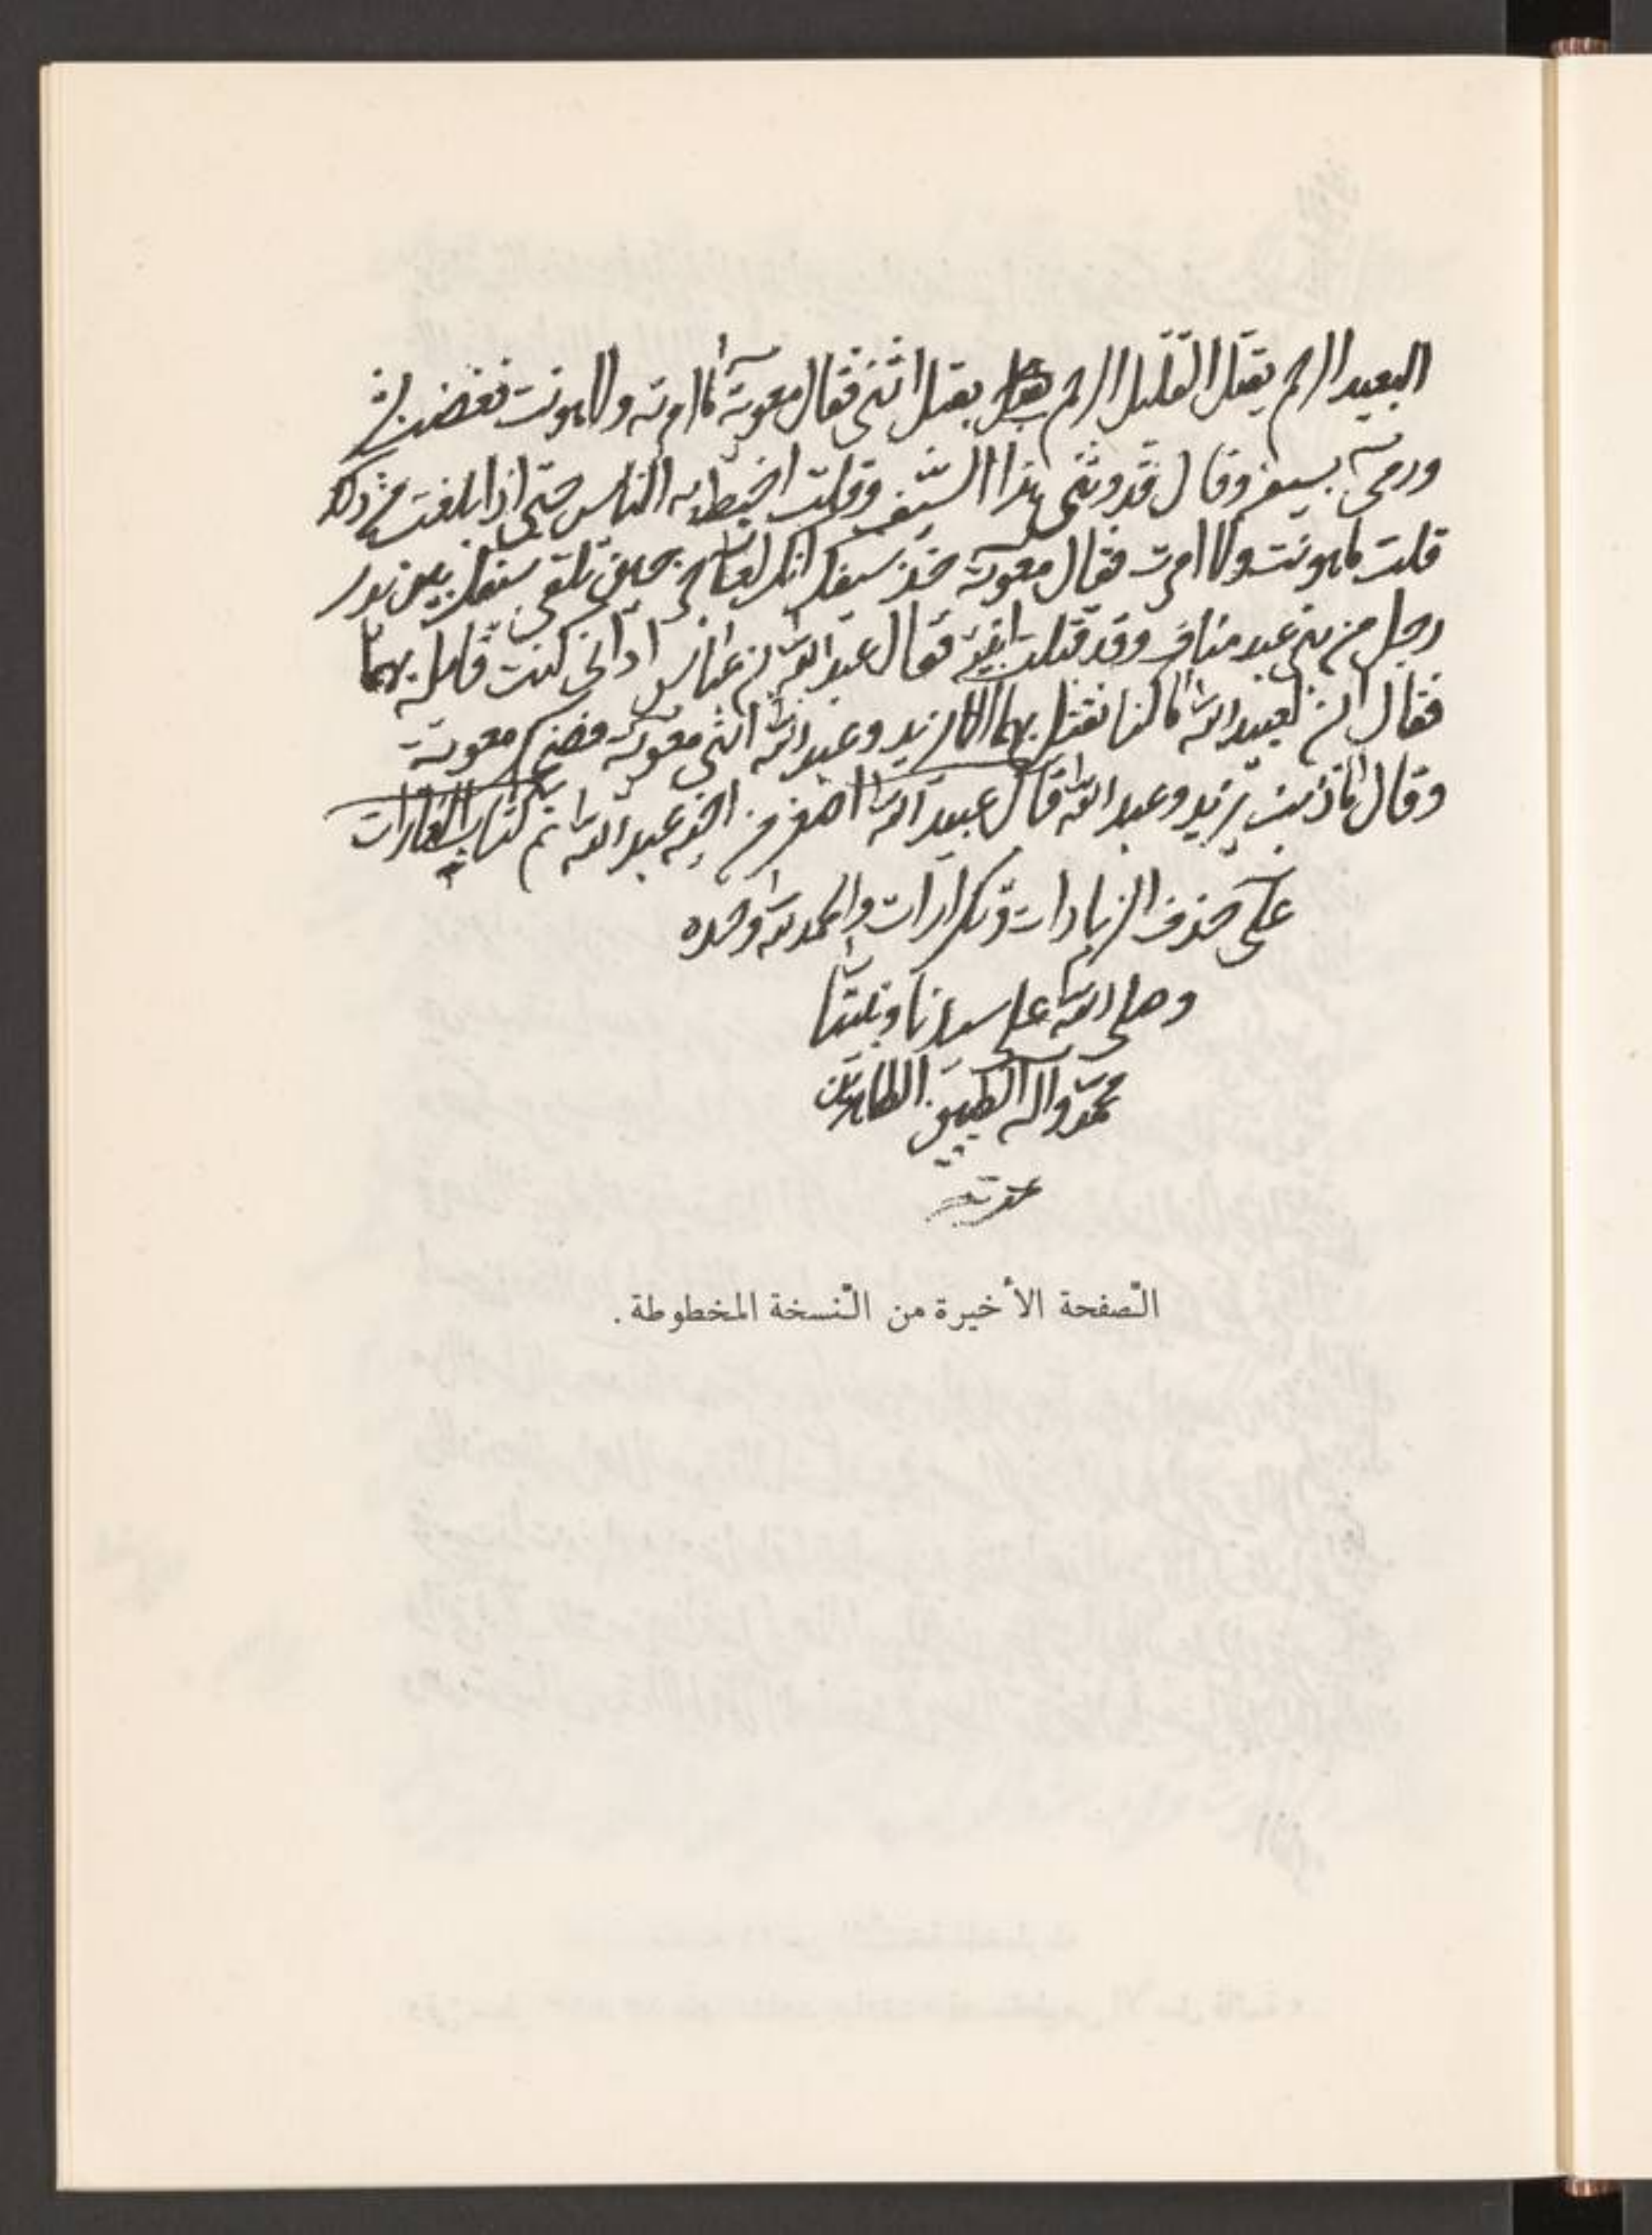 البعيد الرحم يقتل القليل الرحم يقتل ابني فقال معوية ما امرته ولا هويت فغضب بسر
ورمى بسيفه وقال قلدتني هذا السيف وقلت اخبط به الناس حتى اذا بلغت من ذلك
قلت ما هويت ولا امرت فقال معوية خذ سيفك انك لعاجز حين تلقى سيفك بين يدي
رجل من بني عبد مناف وقد قتلت ابنيه فقال عبيد الله بن عباس اتراني كنت قاتله بهما
فقال ابن لعبيد الله ما كنا نقتل بهما الا يزيد وعبد الله ابني معوية فضحك معوية
وقال ما ذنب يزيد وعبد الله قال عبيد الله اصغر من اخيه عبد الله تم كتاب الغارات
على حذف الزيادات وتكرارات والحمد لله وحده
وصلى الله على سيدنا ونبينا
محمد وآله الطيبين الطاهرين
الصفحة الأخيرة من النسخة المخطوطة .